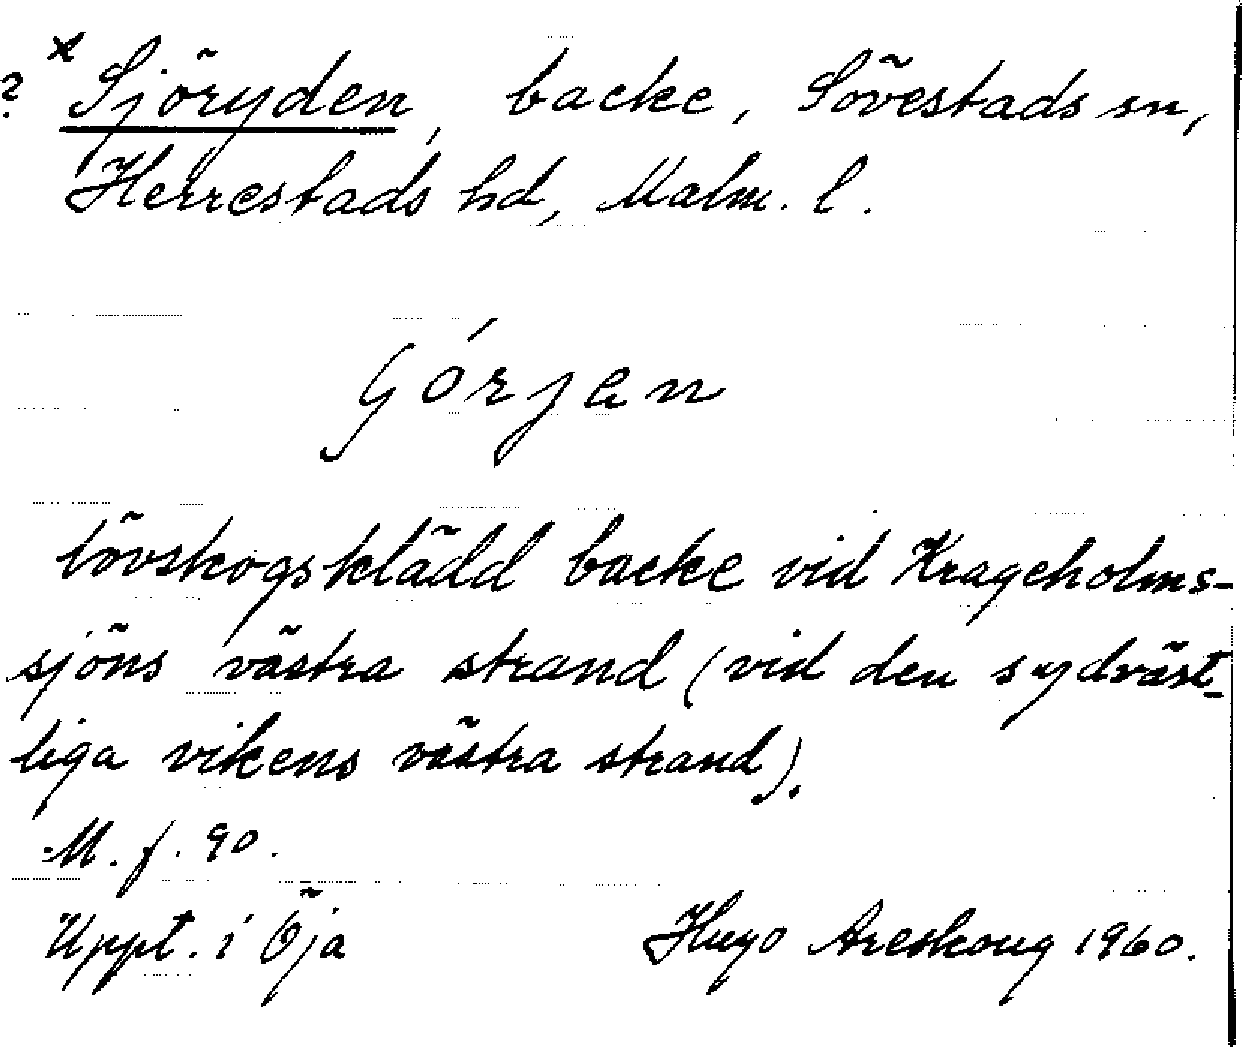 ? x Sjöryden, backe, Sövestads sn,
Herrestads hd, Malm. l.
Górjen
lövskogsklädd backe vid Krageholms-
sjöns västra strand (vid den sydväst-
liga vikens västra strand).
M. f. 90.
Uppt. i Öja Hugo Areskoug 1960.